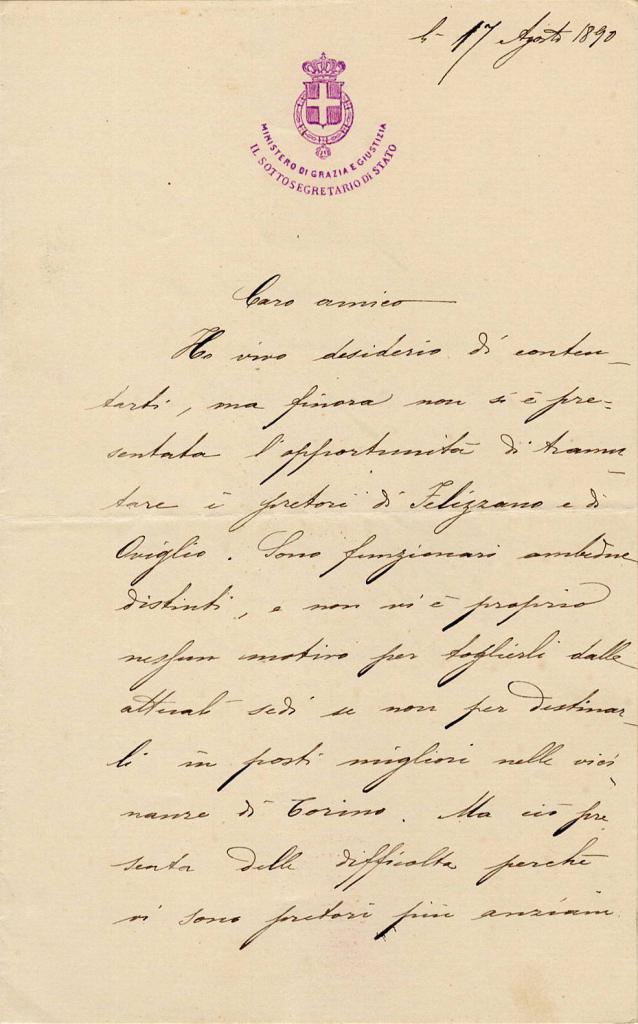 li 17 Agosto 1890
MINISTERO DI GRAZIA E GIUSTIZIA
IL SOTTOSEGRETARIO DI STATO
Caro amico
Ho vivo desiderio di conten-
tarti, ma finora non si è pre-
sentata l'opportunità di tramu-
tare i pretori di Felizzano e di
Oviglio. Sono funzionari ambedue
distinti, e non vi è proprio
nessun motivo per toglierli dalle
attuali sedi se non per destinar-
li in posti migliori nelle vici-
nanze di Torino. Ma ciò pre
senta delle difficoltà perchè
vi sono pretori più anziani